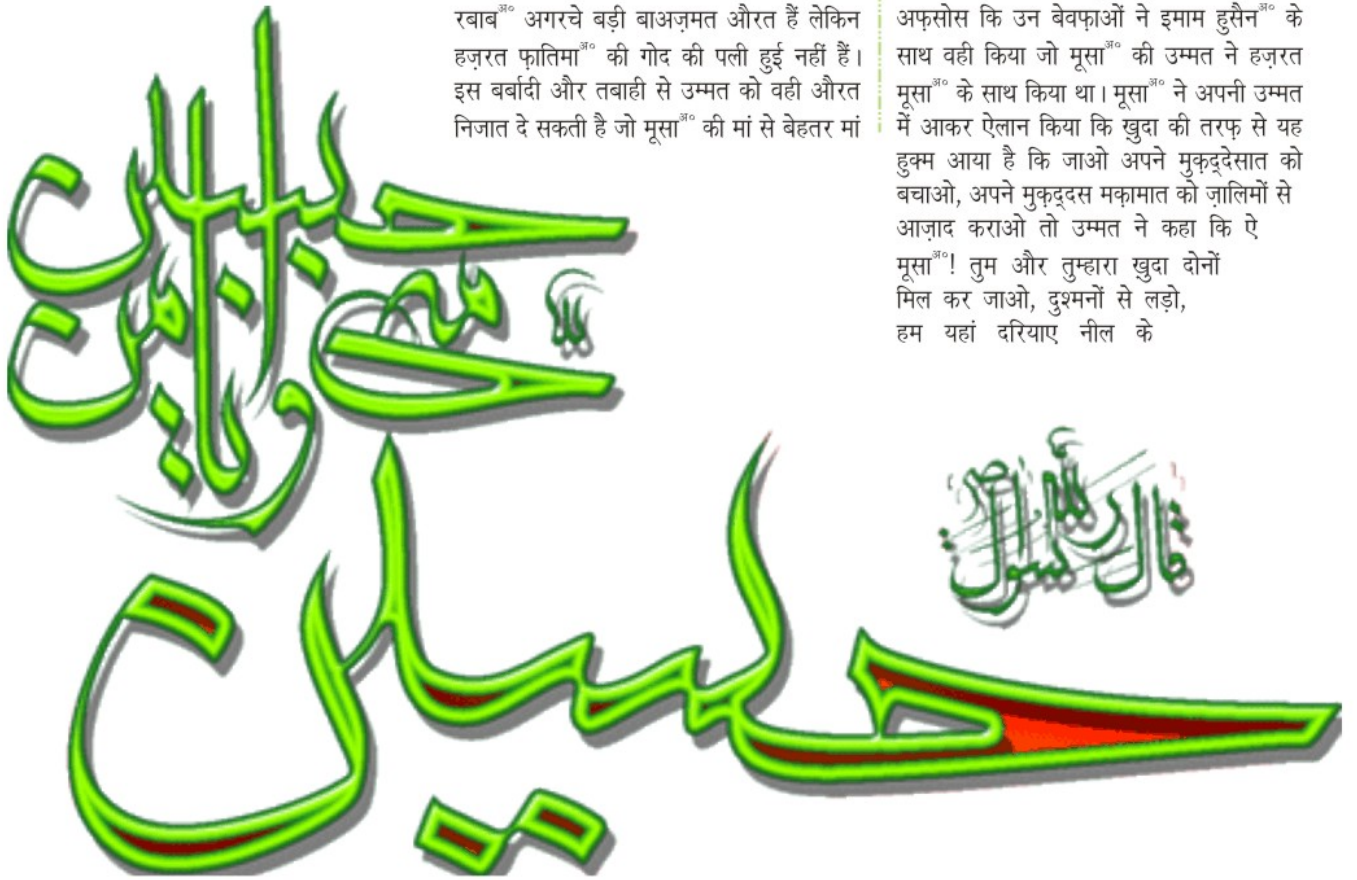 रबाबअ० अगरचे बड़ी बाअज़मत औरत हैं लेकिन
हज़रत फ़ातिमाअ० की गोद की पली हुई नहीं हैं।
इस बर्बादी और तबाही से उम्मत को वही औरत
निजात दे सकती है जो मूसाअ० की मां से बेहतर मां
अफ़सोस कि उन बेवफ़ाओं ने इमाम हुसैनअ० के
साथ वही किया जो मूसाअ० की उम्मत ने हज़रत
मूसाअ० के साथ किया था। मूसाअ० ने अपनी उम्मत
में आकर ऐलान किया कि ख़ुदा की तरफ़ से यह
हुक्म आया है कि जाओ अपने मुक़द्देसात को
बचाओ, अपने मुक़द्दस मक़ामात को ज़ालिमों से
आज़ाद कराओ तो उम्मत ने कहा कि ऐ
मूसाअ०! तुम और तुम्हारा ख़ुदा दोनों
मिल कर जाओ, दुश्मनों से लड़ो,
हम यहां दरियाए नील के
قال رسول الله
حسين مني
وانا من حسين
حسين